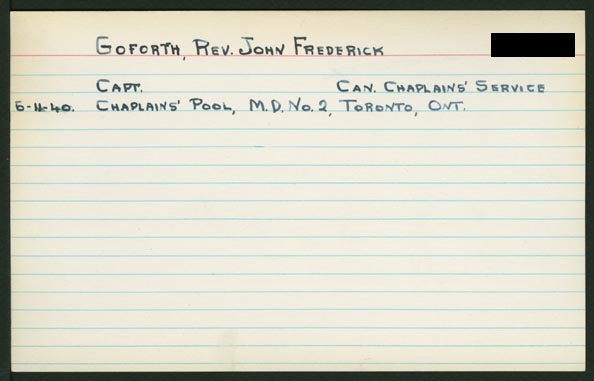 GOFORTH, REV. JOHN FREDERICK
CAPT. CAN. CHAPLAINS' SERVICE
6-11-40. CHAPLAINS' POOL, M.D. NO. 2, TORONTO, ONT.